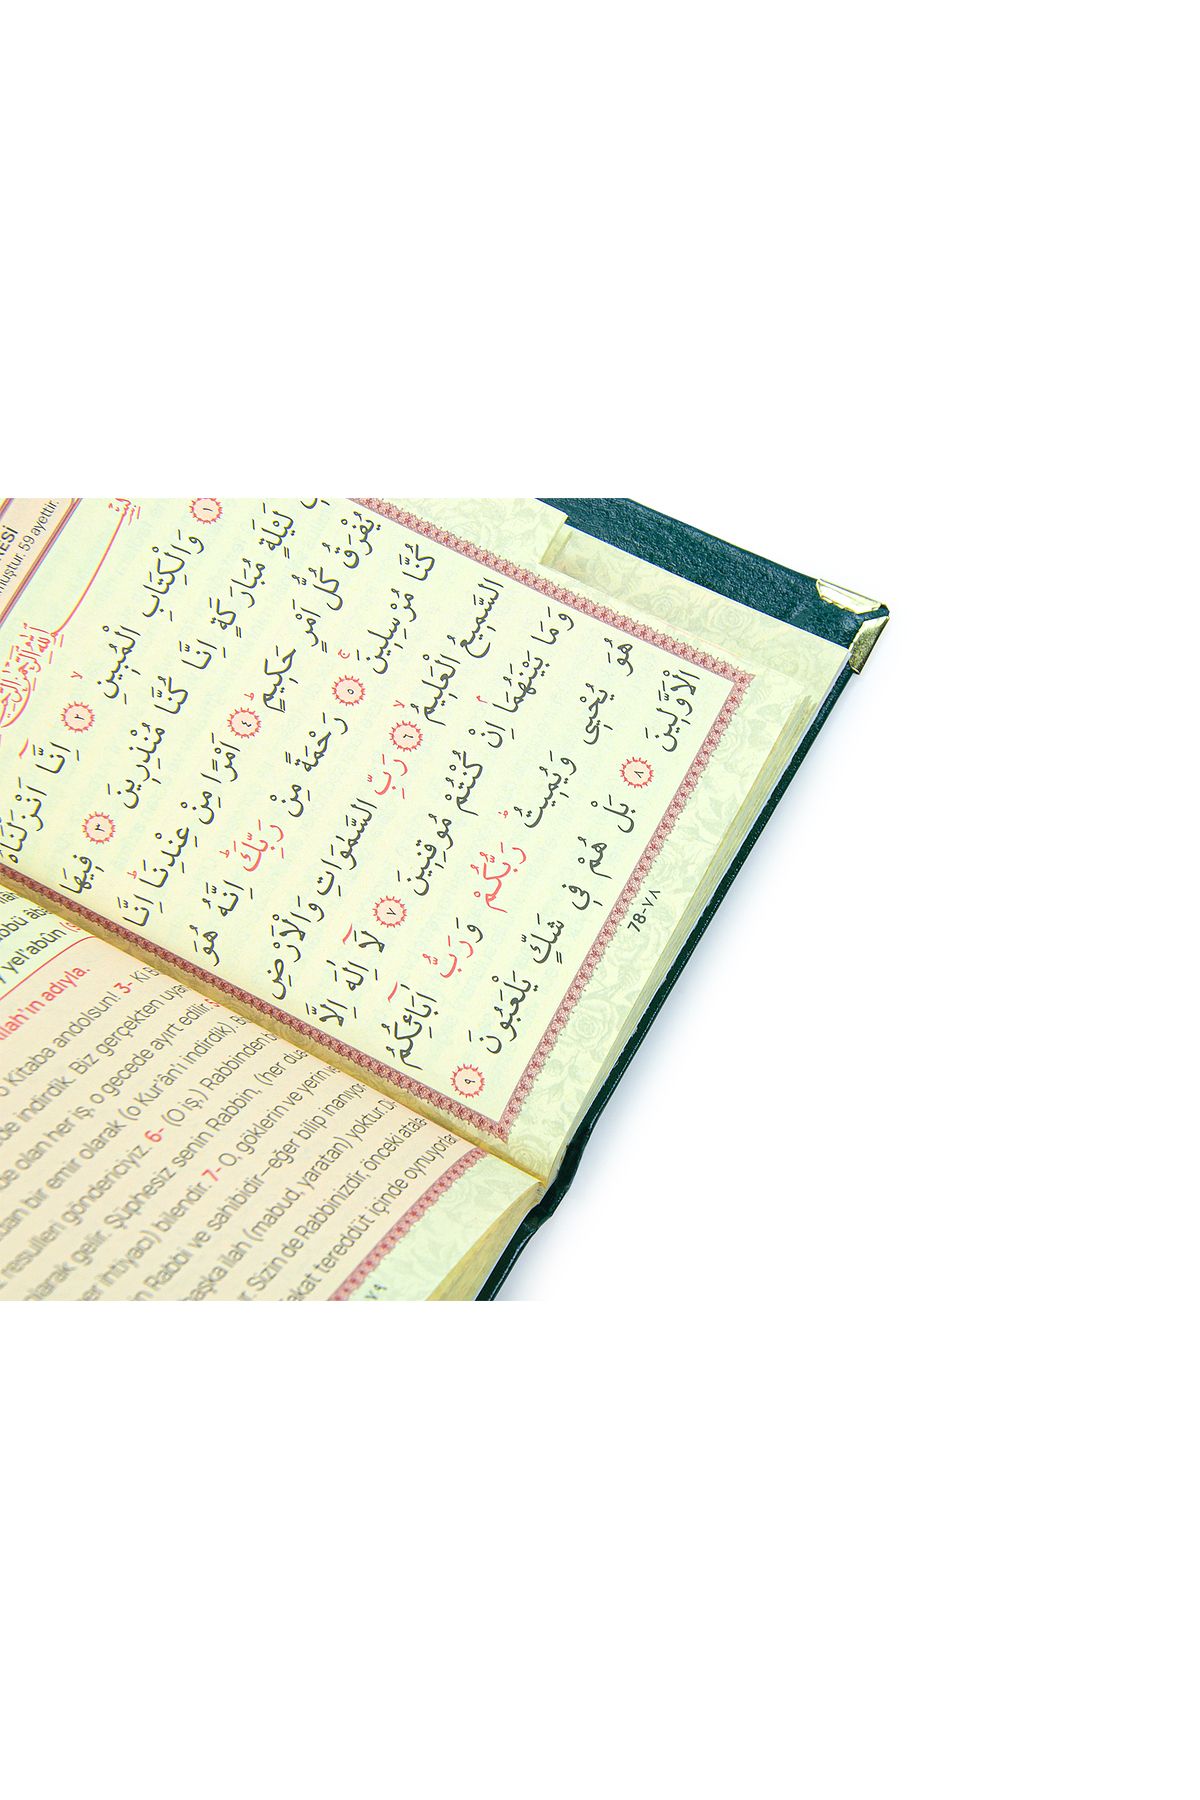 RESİ
muştur. 59 ayettir.
١ وَالْكِتَابِ الْمُبٖينِ ٢ اِنَّٓا اَنْزَلْنَاهُ
لَيْلَةٍ مُبَارَكَةٍ اِنَّا كُنَّا مُنْذِرٖينَ ٣ فٖيهَا
يُفْرَقُ كُلُّ اَمْرٍ حَكٖيمٍ ٤ اَمْرًا مِنْ عِنْدِنَا اِنَّا
كُنَّا مُرْسِلٖينَ ٥ رَحْمَةً مِنْ رَبِّكَ اِنَّهُ هُوَ
السَّمٖيعُ الْعَلٖيمُ ٦ رَبِّ السَّمٰوَاتِ وَالْاَرْضِ
وَمَا بَيْنَهُمَا اِنْ كُنْتُمْ مُوقِنٖينَ ٧ لَٓا اِلٰهَ اِلَّا
هُوَ يُحْيٖي وَيُمٖيتُ رَبُّكُمْ وَرَبُّ اٰبَٓائِكُمُ
الْاَوَّلٖينَ ٨ بَلْ هُمْ فٖي شَكٍّ يَلْعَبُونَ ٩
78-٧٨
yel'abûn
adıyla.
o Kitaba andolsun! 3-
indirdik. Biz gerçekten
olan her iş, o gecede ayırt edilir.
bir emir olarak (o Kur'ân'ı indirdik).
resulleri göndericiyiz. 6- (O iş,) Rabbinden
olarak gelir. Şüphesiz senin Rabbin, (her
ihtiyacı) bilendir. 7- O, göklerin ve yerin
Rabbi ve sahibidir—eğer bilip inanıyor
başka ilah (mabud, yaratan) yoktur.
Sizin de Rabbinizdir, önceki
tereddüt içinde oynuyorlar
٧٩